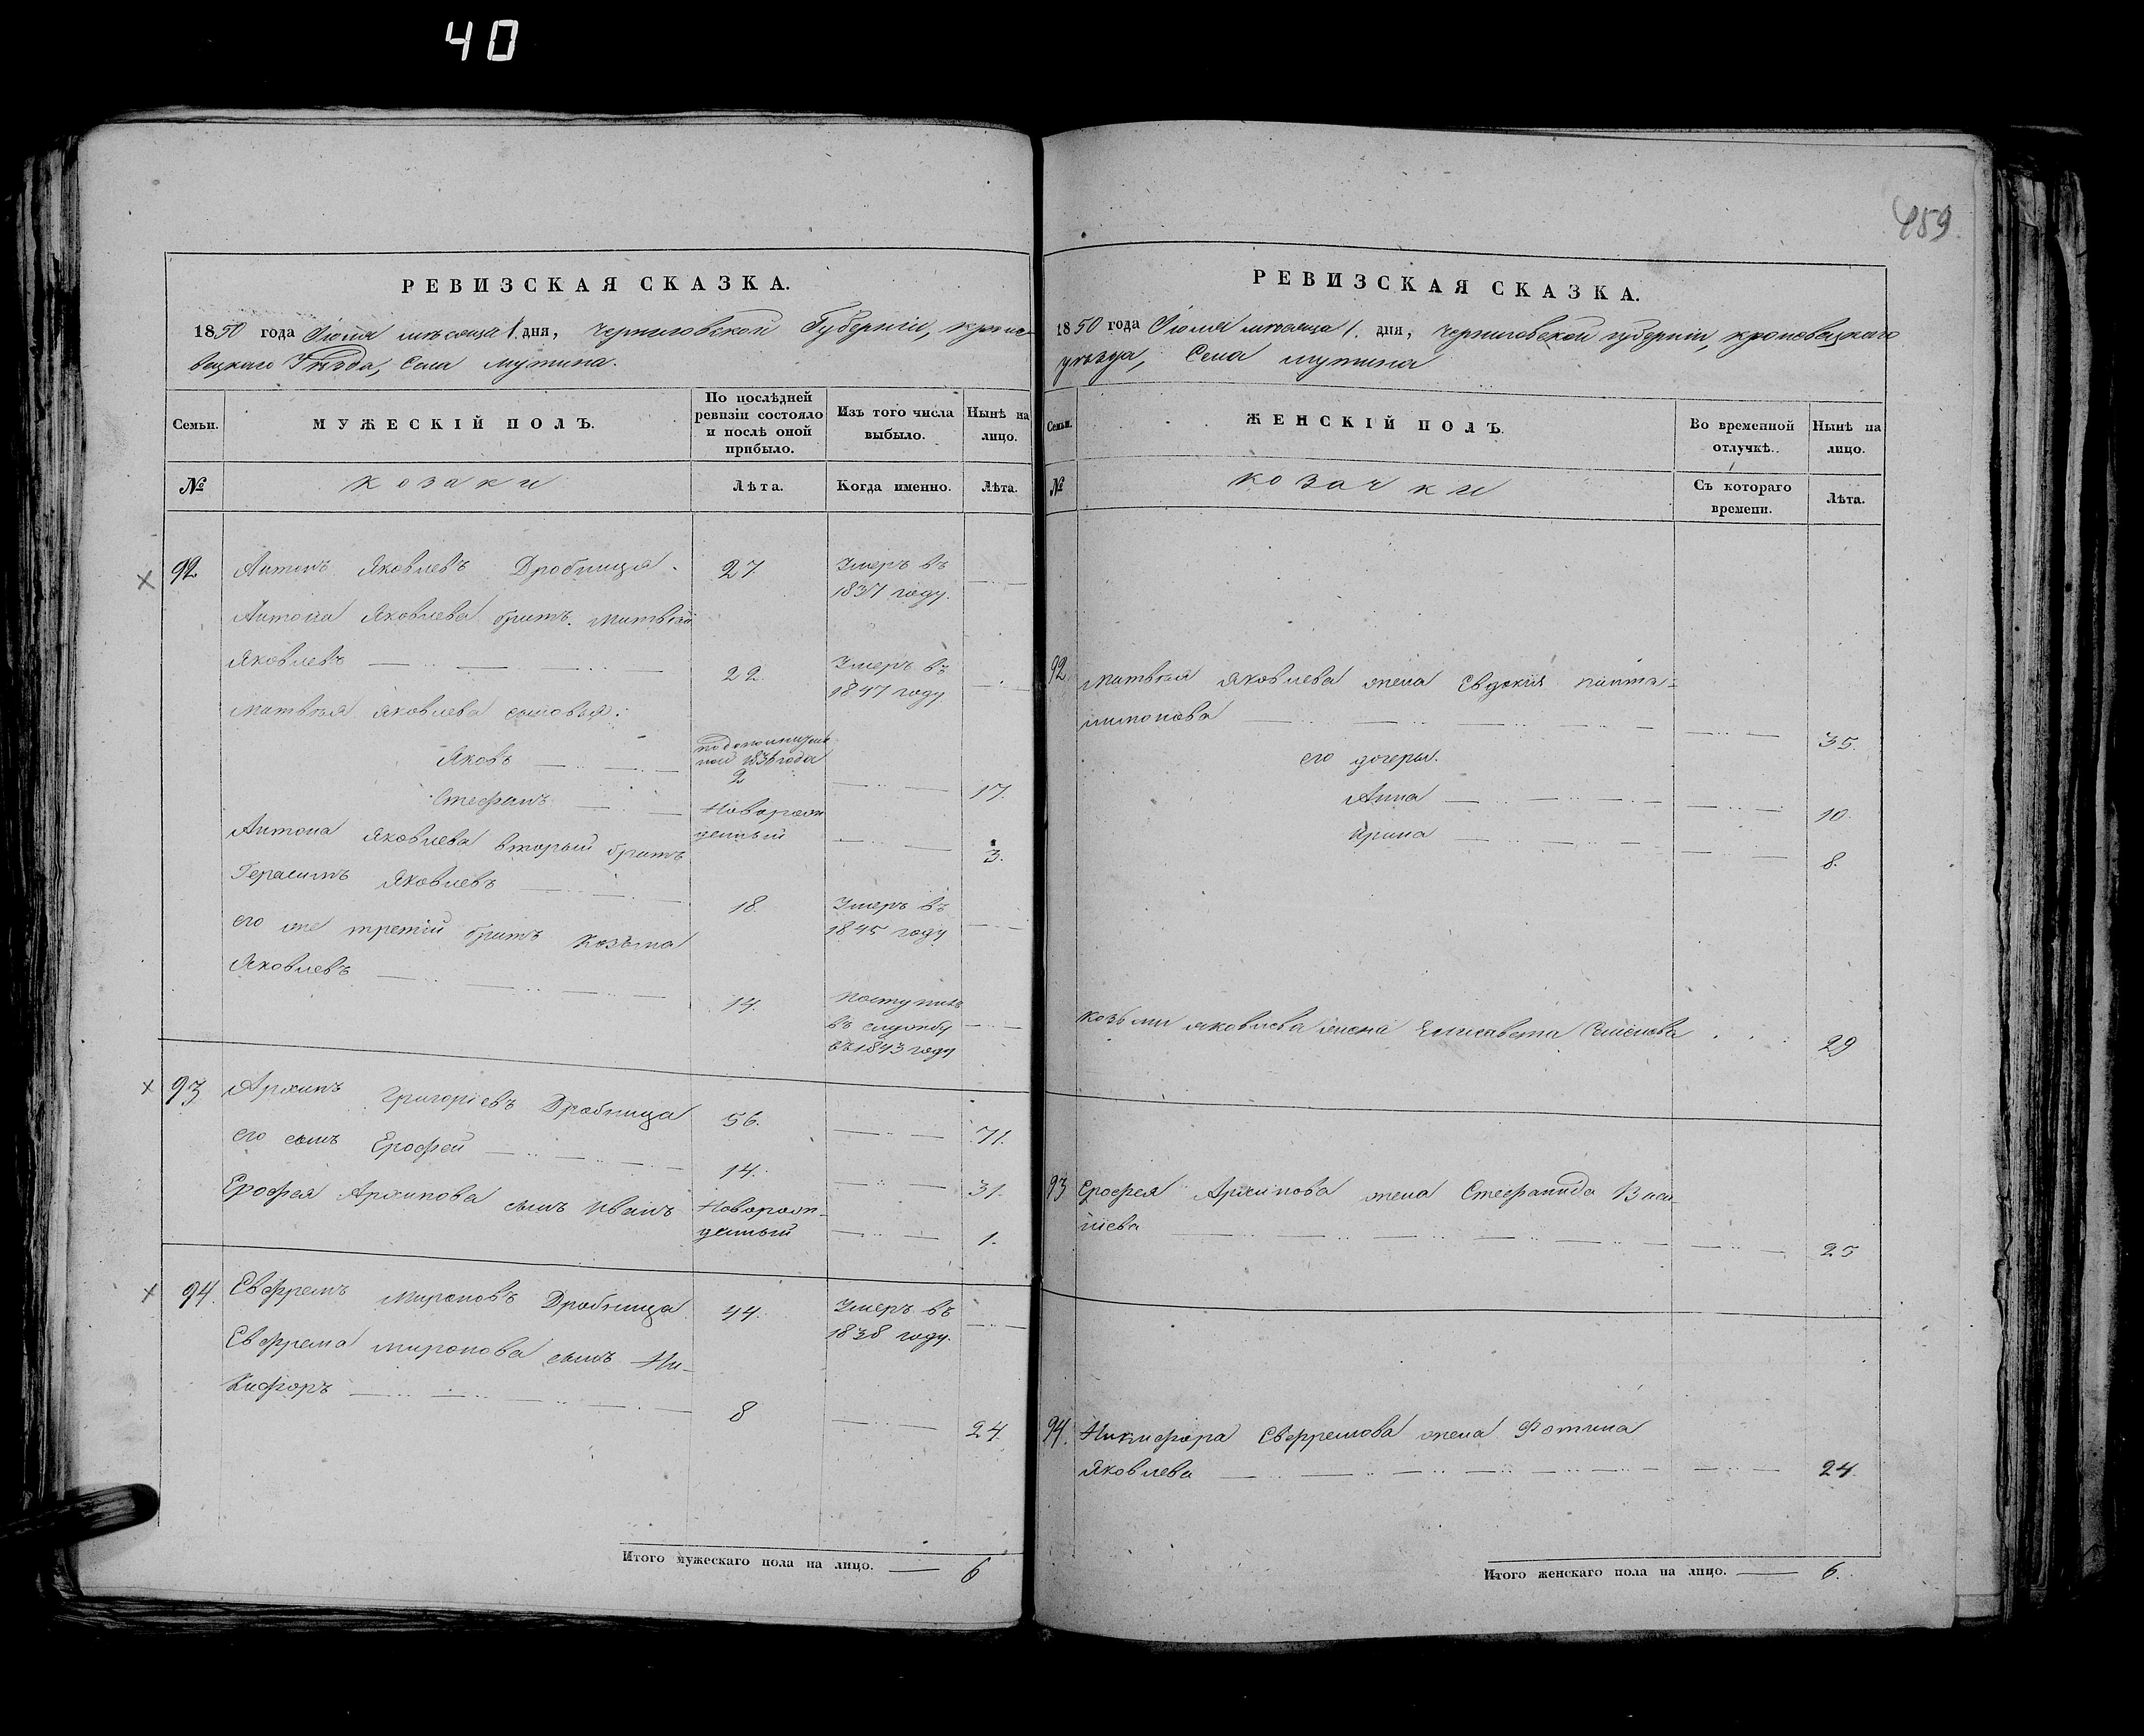 40
459
РЕВИЗСКАЯ СКАЗКА.
1850 года Іюля мѣсяца 1. дня, Черниговской Губерніи, Кроле-
вецкаго Уѣзда, Села Мутина.
Семьи.
МУЖЕСКІЙ ПОЛЪ.
По послѣдней ревизіи состояло и послѣ оной прибыло.
Изъ того числа выбыло.
Нынѣ на лицо.
№
козаки
Лѣта.
Когда именно.
Лѣта.
92 Антонъ Яковлевъ Дробница. 27 Умеръ въ
1837 году.
Антона Яковлева братъ Матвѣй
Яковлевъ 22. Умеръ въ
1847 году
Матвѣя Яковлева сыновья:
Яковъ 1836 года
2 17.
Стефанъ Новорож-
денный 3.
Антона Яковлева вторый братъ
Герасимъ Яковлевъ 18. Умеръ въ
1845 году
его же третій братъ Козьма
Яковлевъ 14. Поступилъ
въ службу
въ 1843 году
93 Архипъ Григоріевъ Дробница 56. 71.
его сынъ Ерофей 14. 31.
Ерофея Архипова сынъ Иванъ Новорож-
денный 1.
94. Евфремъ Мироновъ Дробница 44. Умеръ въ
1838 году.
Евфрема Миронова сынъ Ни-
кифоръ 8 24.
Итого мужескаго пола на лицо. 6
РЕВИЗСКАЯ СКАЗКА.
1850 года Іюля мѣсяца 1. дня, Черниговской губерніи, Кролевецкаго
уѣзда, Села Мутина
Семьи.
ЖЕНСКІЙ ПОЛЪ.
Во временной отлучкѣ.
Нынѣ на лицо.
№
козачки
Съ котораго времени.
Лѣта.
92. Матвѣя Яковлева жена Евдокія Панте-
лимонова 35.
его дочери.
Анна 10.
Ирина 8.
Козьмы Яковлева жена Елисавета Семенова 29
93 Ерофея Архипова жена Стефанида Васи-
лiева 25
94. Никифора Евфремова жена Фотина
Яковлева 24.
Итого женскаго пола на лицо. 6.